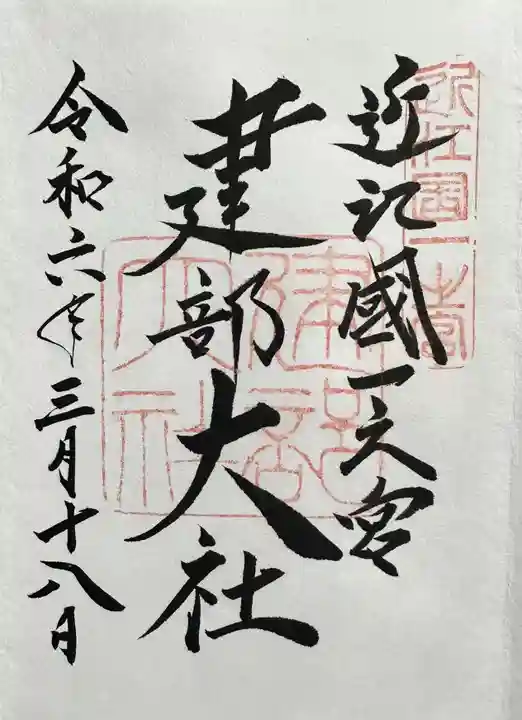 近江國一之宮
建部大社
令和六年三月十八日
近江國一宮
建部大社